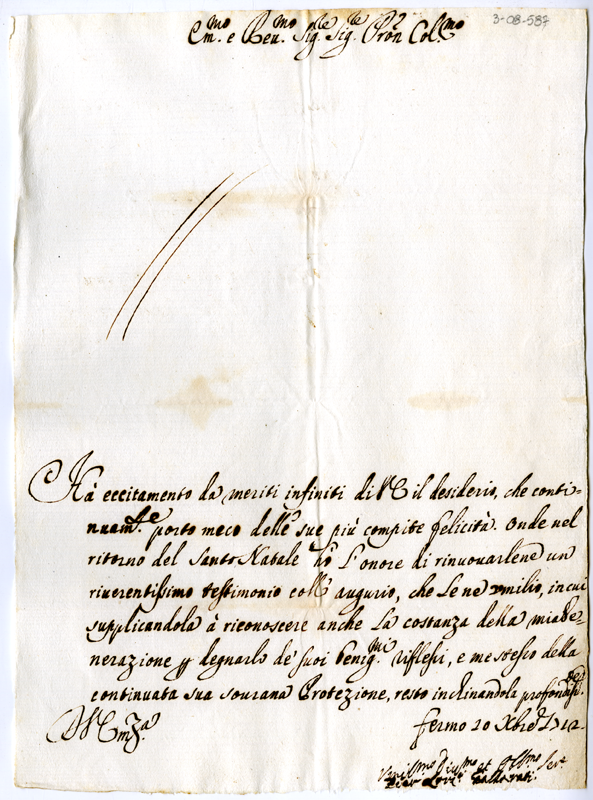 3-08-587
Em.mo e Reu.mo Sig.re Sig.re Pron Col.mo
Hà eccitamento da meriti infiniti di VE il desiderio, che conti=
nuam.te porto meco delle sue più compite felicità. Onde nel
ritorno del Santo Natale hò l'onore di rinuouarlene un
riuerentissimo testimonio coll' augurio, che Le ne umilio, in cui
supplicandola à riconoscere anche la costanza della mia Ve=
nerazione p degnarlo de' suoi benig.mi riflessi, e me stesso della
continuata sua sourana Protezione, resto inchinandola profondis.te
D V Emza
fermo 20 Xbre 1712
Vmil.mo Diu.mo et Obl.mo Ser.